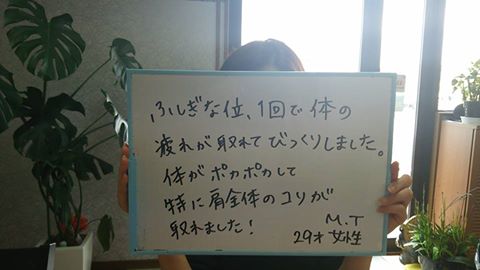 ふしぎな位、1回で体の
疲れが取れてびっくりしました。
体がポカポカして
特に肩全体のコリが
取れました!
M.T
29才 女性